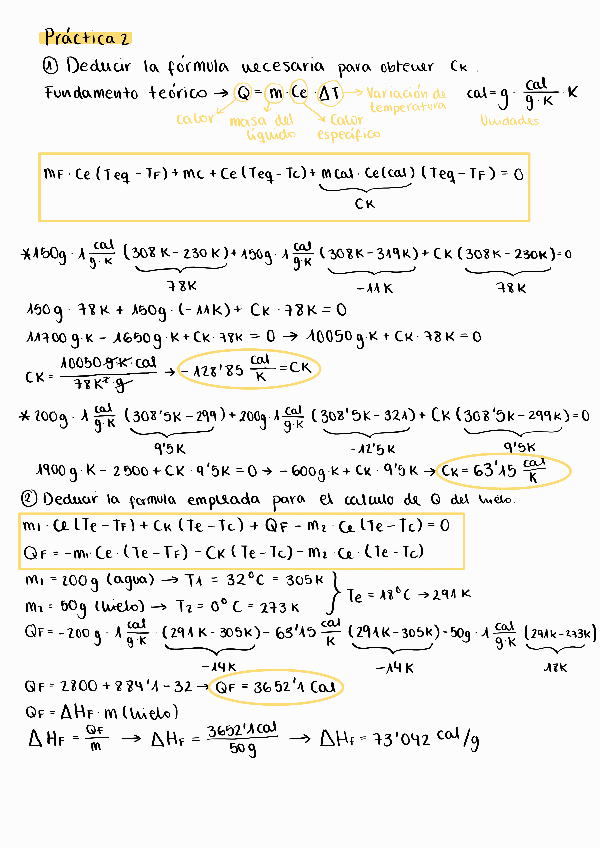 Práctica 2
① Deducir la fórmula necesaria para obtener CK.
Fundamento teórico → Q = m · Ce · ΔT → Variación de temperatura cal = g · cal/g·K · K
calor masa del líquido Calor específico Unidades
mF · Ce (Teq - TF) + mc + Ce (Teq - Tc) + mcal · Ce(cal) (Teq - TF) = 0
CK
*150g · 1 cal/g·K (308K - 230K) + 150g · 1 cal/g·K (308K - 319K) + CK (308K - 230K) = 0
78K -11K 78K
150g · 78K + 150g · (-11K) + CK · 78K = 0
11700 g·K - 1650g·K + CK · 78K = 0 → 10050g·K + CK · 78K = 0
CK = 10050 g·K·cal / 78K² · g → -128'85 cal/K = CK
*200g · 1 cal/g·K (308'5K - 299) + 200g · 1 cal/g·K (308'5K - 321) + CK (308'5K - 299K) = 0
9'5K -12'5K 9'5K
1900g·K - 2500 + CK · 9'5K = 0 → -600g·K + CK · 9'5K → CK = 63'15 cal/K
② Deducir la formula empleada para el calculo de Q del hielo.
m1 · Ce (Te - TF) + CK (Te - Tc) + QF - m2 · Ce (Te - Tc) = 0
QF = -m1 · Ce · (Te - TF) - CK (Te - Tc) - m2 · Ce · (Te - Tc)
m1 = 200g (agua) → T1 = 32°C = 305K
m2 = 50g (hielo) → T2 = 0°C = 273K
Te = 18°C → 291K
QF = -200g · 1 cal/g·K · (291K - 305K) - 63'15 cal/K (291K - 305K) - 50g · 1 cal/g·K (291K - 273K)
-14K -14K 18K
QF = 2800 + 884'1 - 32 → QF = 3652'1 Cal
QF = ΔHF · m (hielo)
ΔHF = QF/m → ΔHF = 3652'1cal/50g → ΔHF = 73'042 cal/g